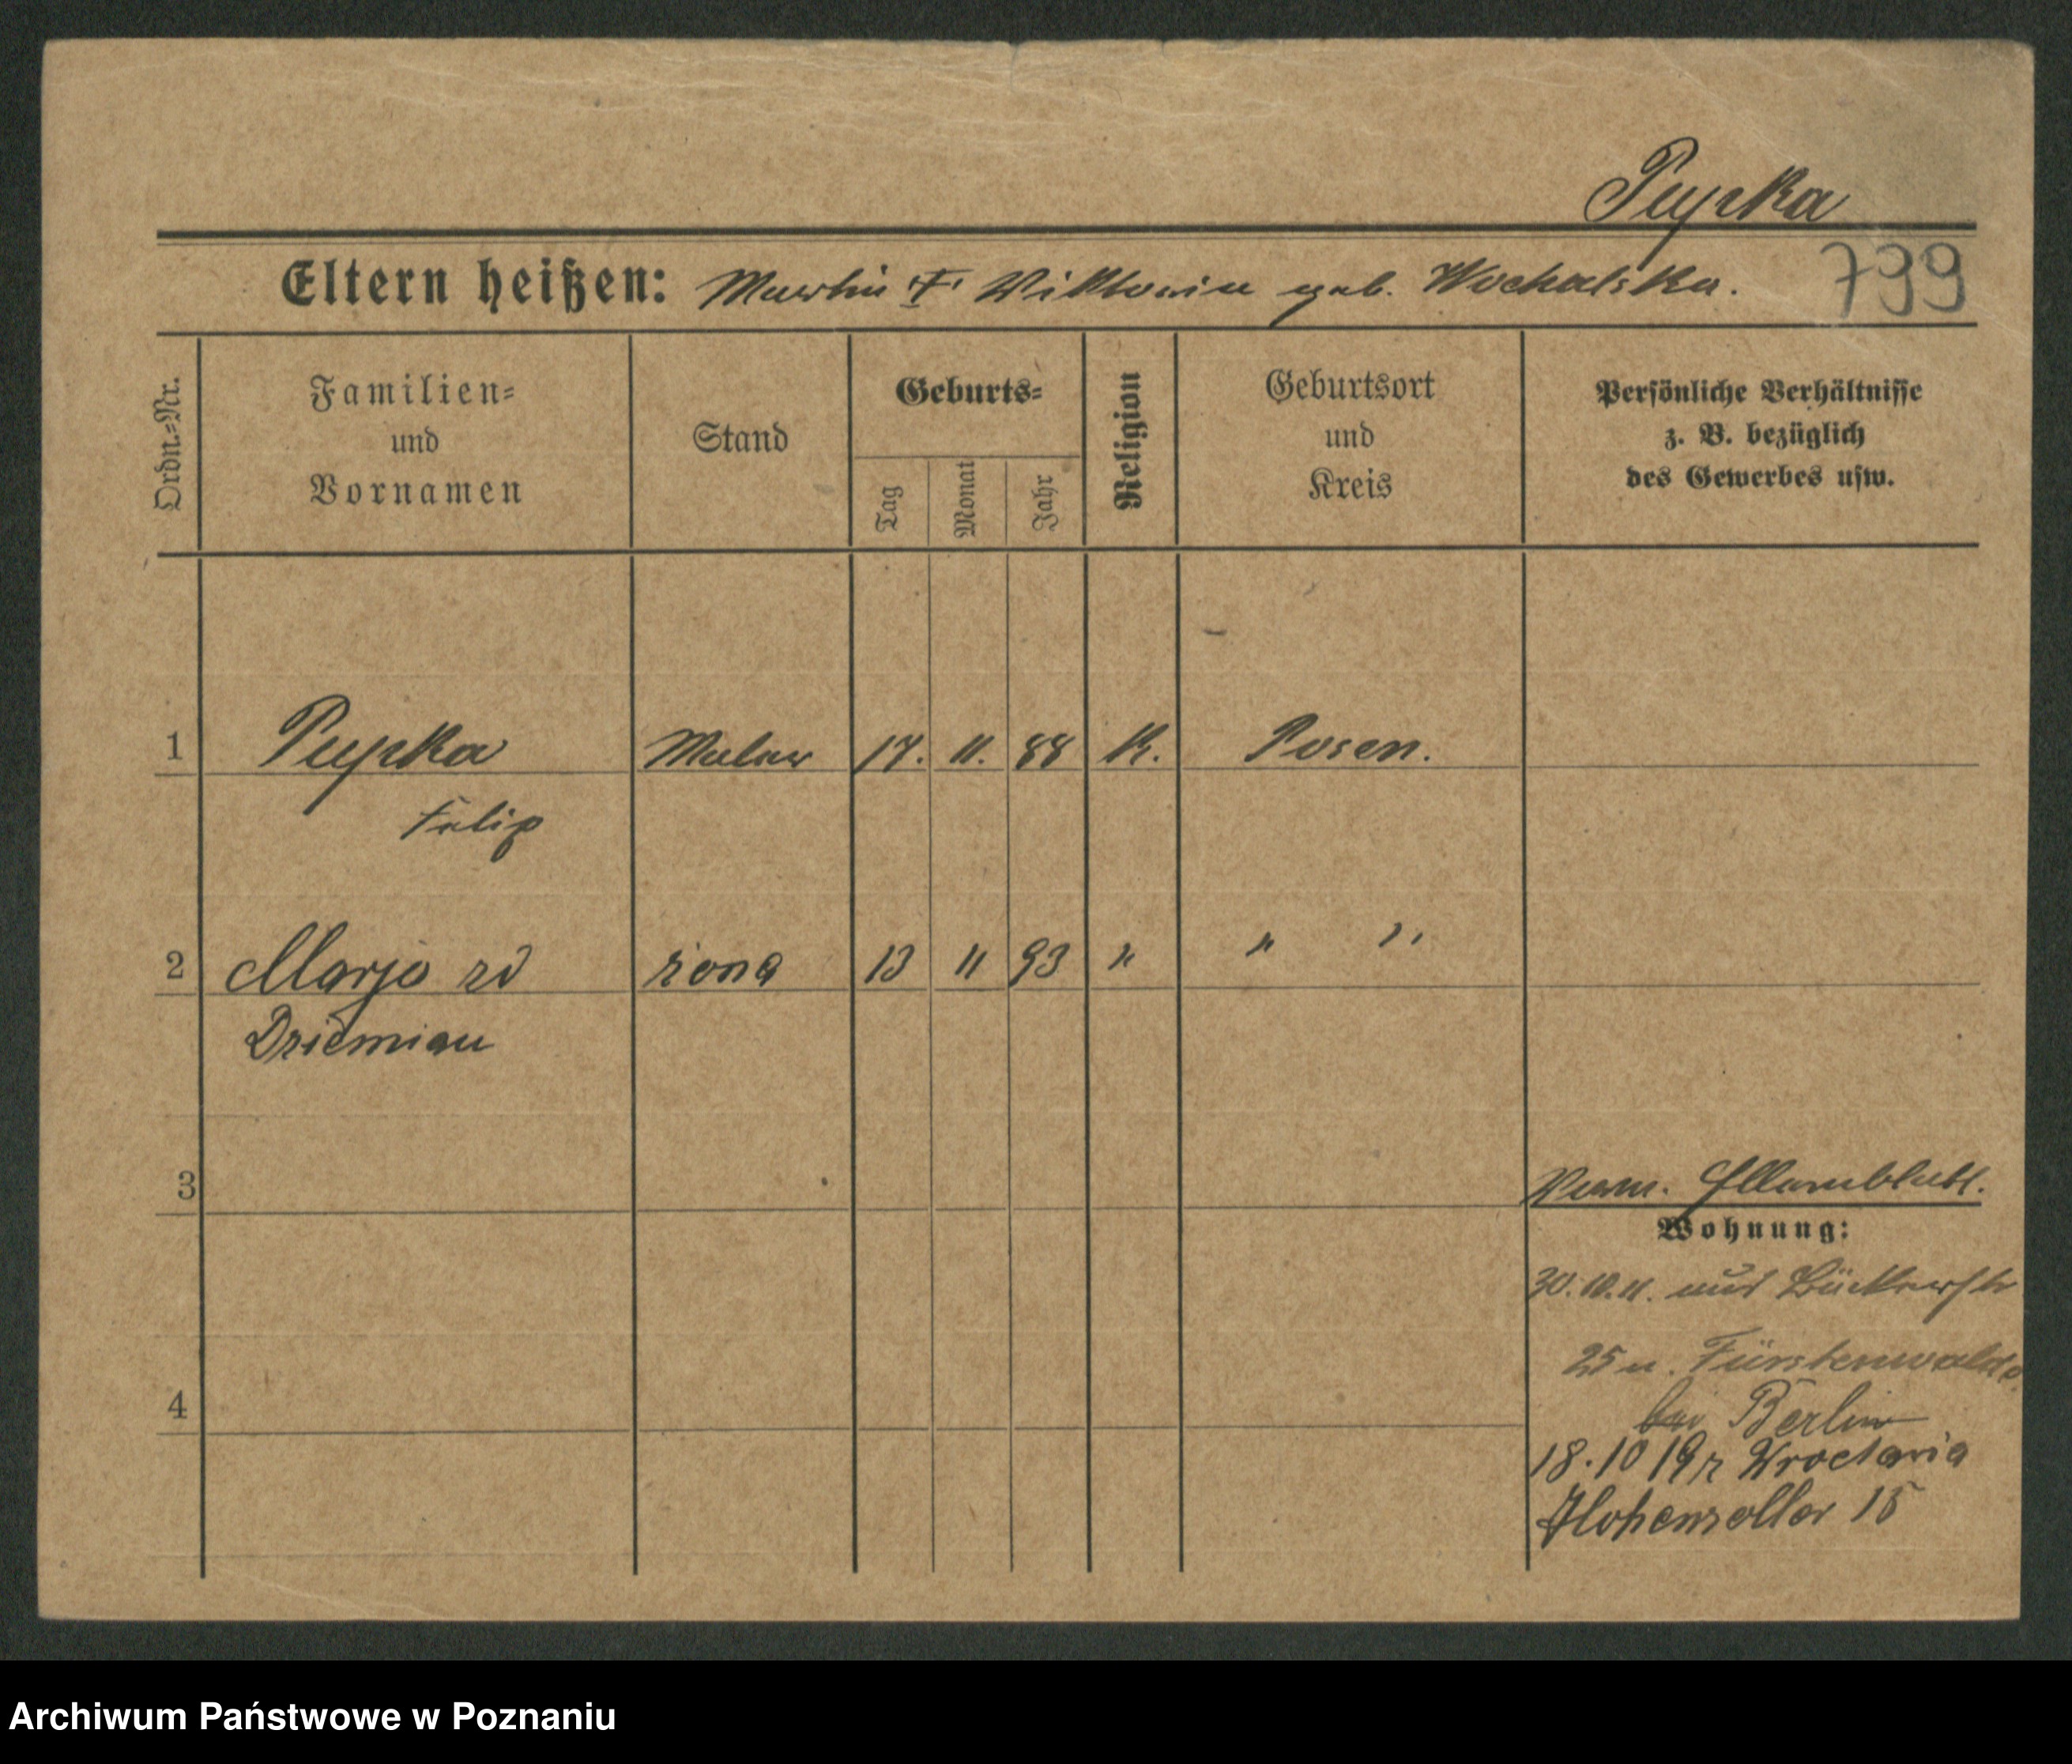 Pupka
Eltern heißen: Martin † Viktoria geb. Wochalska.
799
Ordn.-Nr.
Familien-
und
Vornamen
Stand
Geburts-
Tag
Monat
Jahr
Religion
Geburtsort
und
Kreis
Persönliche Verhältnisse
z. B. bezüglich
des Gewerbes usw.
1 Pupka Maler 17. 11. 88 K. Posen.
Felix
2 Marja zd żona 13 11 93 " " "
Dziemian
3
Wohnung:
30.10.11. aus
25 n. Fürstenwalde
bei Berlin
4
18.10 19 r Wrocławia
Hohenzoller 15
Archiwum Państwowe w Poznaniu